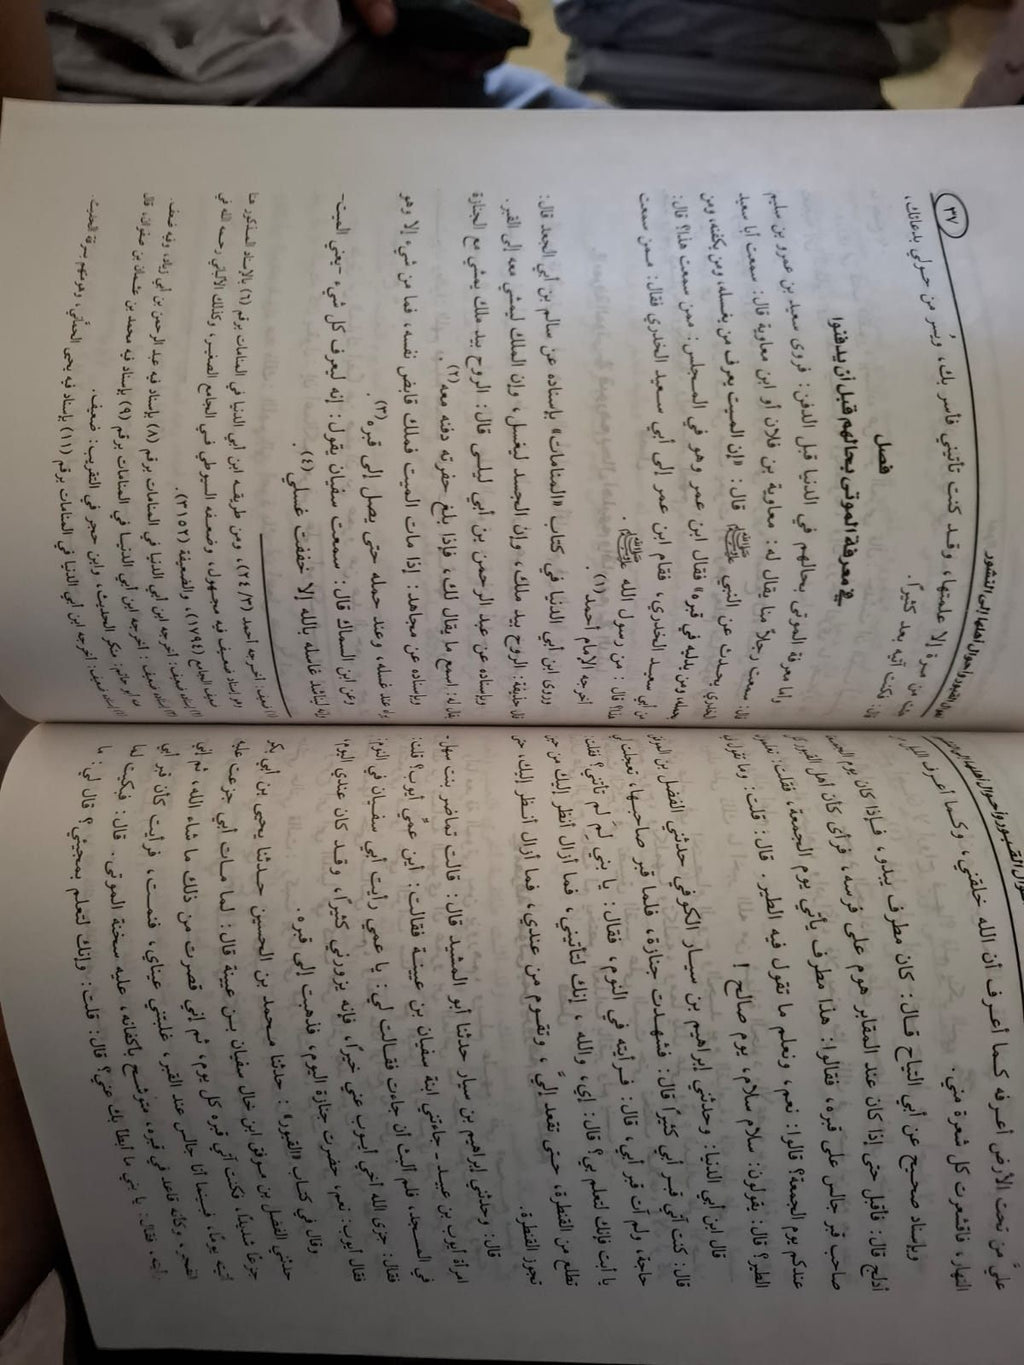 أهوال القبور وأحوال أهلها
عليَّ من تحت الأرض أعرفه كما أعرف أن الله خلقني، وكما أعرف الليل
النهار، فاقشعرت كل شعرة مني.
وبإسناد صحيح عن أبي التياح قال: كان مطرف يبدو، فإذا كان يوم الجمعة
أدلج قال: فأقبل حتى إذا كان عند المقابر هوم على فرسه، فرأى كأن أهل القبور
صاحب قبر جالس على قبره، فقالوا: هذا مطرف يأتي يوم الجمعة، فقلت:
عندكم يوم الجمعة؟ قالوا: نعم، ونعلم ما تقول فيه الطير. قال: قلت: وما تقول
الطير؟ قال: يقولون: سلام سلام، يوم صالح!
قال ابن أبي الدنيا: وحدثني إبراهيم بن سيار الكوفي حدثني الفضل بن الموفق
قال: كنت آتي قبر أبي كثيرًا قال: فشهدت جنازة، فلما قبر صاحبها، تعجلت
حاجة، ولم آت قبر أبي، قال: فرأيته في النوم، فقال: يا بني لمَ لم تأتني؟ فقلت:
يا أبت فإنك لتعلم بي؟ قال: إي، والله، إنك لتأتيني، فما أزال أنظر إليك من حين
تطلع من القنطرة، حتى تقعد إليَّ، وتقوم من عندي، فما أزال أنظر إليك، حتى
تجوز القنطرة.
قال: وحدثني إبراهيم بن سيار حدثنا أبو المشيد قال: قالت تماضر بنت سهل
امرأة أيوب بن عيينة ـ جاءتني ابنة سفيان بن عيينة فقالت: أين عمي أيوب؟ قلت:
في المسجد، فلم ألبث أن جاءت فقالت لي: يا عمي رأيت أبي سفيان في النوم
فقال: جزى الله أخي أيوب عني خيرًا، فإنه يزورني كثيرًا، وقد كان عندي اليوم،
فقال أيوب: نعم، حضرت جنازة اليوم، فذهبت إلى قبره.
وقال في كتاب «القبور»: حدثنا محمد بن الحسين حدثنا يحيى بن أبي بكر
حدثني الفضل بن موفق ابن خال سفيان بن عيينة قال: لما مات أبي جزعت عليه
جزعًا شديدًا، فكنت آتي قبره كل يوم، ثم إني قصرت من ذلك ما شاء الله، ثم إني
أتيته يومًا، فبينما أنا جالس عند القبر، غلبتني عيناي، فنمت، فرأيت كأن قبر أبي
انفجر، وكأنه قاعد في قبره، متوشح بأكفانه، عليه سحنة الموتى.. قال: فبكيت لما
رأيته، فقال: يا بني ما أبطأ بك عني؟ قال: قلت: وإنك لتعلم بمجيئي؟ قال لي: ما
أهوال القبور وأحوال أهلها إلى النشور
٣٧
جئت من مرة إلا علمتها، وقد كنت تأتيني فأسر بك، ويُسر من حولي بدعائك،
قال: فكنت آتيه بعد كثيرًا.
فصل
في معرفة الموتى بحالهم قبل أن يدفنوا
وأما معرفة الموتى بحالهم في الدنيا قبل الدفن: فروى سعيد بن عمرو بن سليم
قال: سمعت رجلًا منا يقال له: معاوية بن فلان أو ابن معاوية قال: سمعت أبا سعيد
الخدري يحدث عن النبي ﷺ قال: «إن الميت يعرف من يغسله، ومن يكفنه، ومن
يحمله، ومن يدليه في قبره» فقال ابن عمر وهو في المجلس: ممن سمعت هذا؟ قال:
من أبي سعيد الخدري، فقام ابن عمر إلى أبي سعيد الخدري فقال: ممن سمعت
هذا؟ قال: من رسول الله ﷺ.
أخرجه الإمام أحمد(١).
وروى ابن أبي الدنيا في كتاب «المنامات» بإسناده عن سالم بن أبي الجعد قال:
قال حذيفة: الروح بيد ملك، وإن الجسد ليغسل، وإن الملك ليمشي معه إلى القبر.
وبإسناده عن عبد الرحمن بن أبي ليلى قال: الروح بيد ملك يمشي مع الجنازة
يقال له: اسمع ما يقال لك، فإذا بلغ حفرته دفنه معه(٢).
وبإسناده عن مجاهد: إذا مات الميت فملك قابض نفسه، فما من شيء إلا وهو
يراه عند غسله، وعند حمله حتى يصل إلى قبره(٣).
وعن ابن السماك قال: سمعت سفيان يقول: إنه ليعرف كل شيء -يعني الميت-
وإنه ليناشد غاسله بالله إلا خففت غسلي(٤).
(١) ضعيف: أخرجه أحمد (٣/ ٢٤)، ومن طريقه ابن أبي الدنيا في المنامات برقم (٦) بالإسناد المذكور هنا
وهو إسناد ضعيف فيه مجهول، وضعفه السيوطي في الجامع الصغير، وكذلك الألباني رحمه الله في
ضعيف الجامع (١٧٩٤)، والضعيفة (٣١٥٢).
(٢) إسناده ضعيف: أخرجه ابن أبي الدنيا في المنامات برقم (٨) بإسناد فيه عبد الرحمن بن أبي زياد، وفيه ضعف.
(٣) إسناده ضعيف: أخرجه ابن أبي الدنيا في المنامات برقم (٩) بإسناد فيه محمد بن عثمان بن صفوان، قال
عنه أبو حاتم: منكر الحديث، وابن حجر في التقريب: ضعيف.
(٤) إسناده ضعيف: أخرجه ابن أبي الدنيا في المنامات برقم (١١) بإسناد فيه يحيى الحماني، وهو متهم بسرقة الحديث.